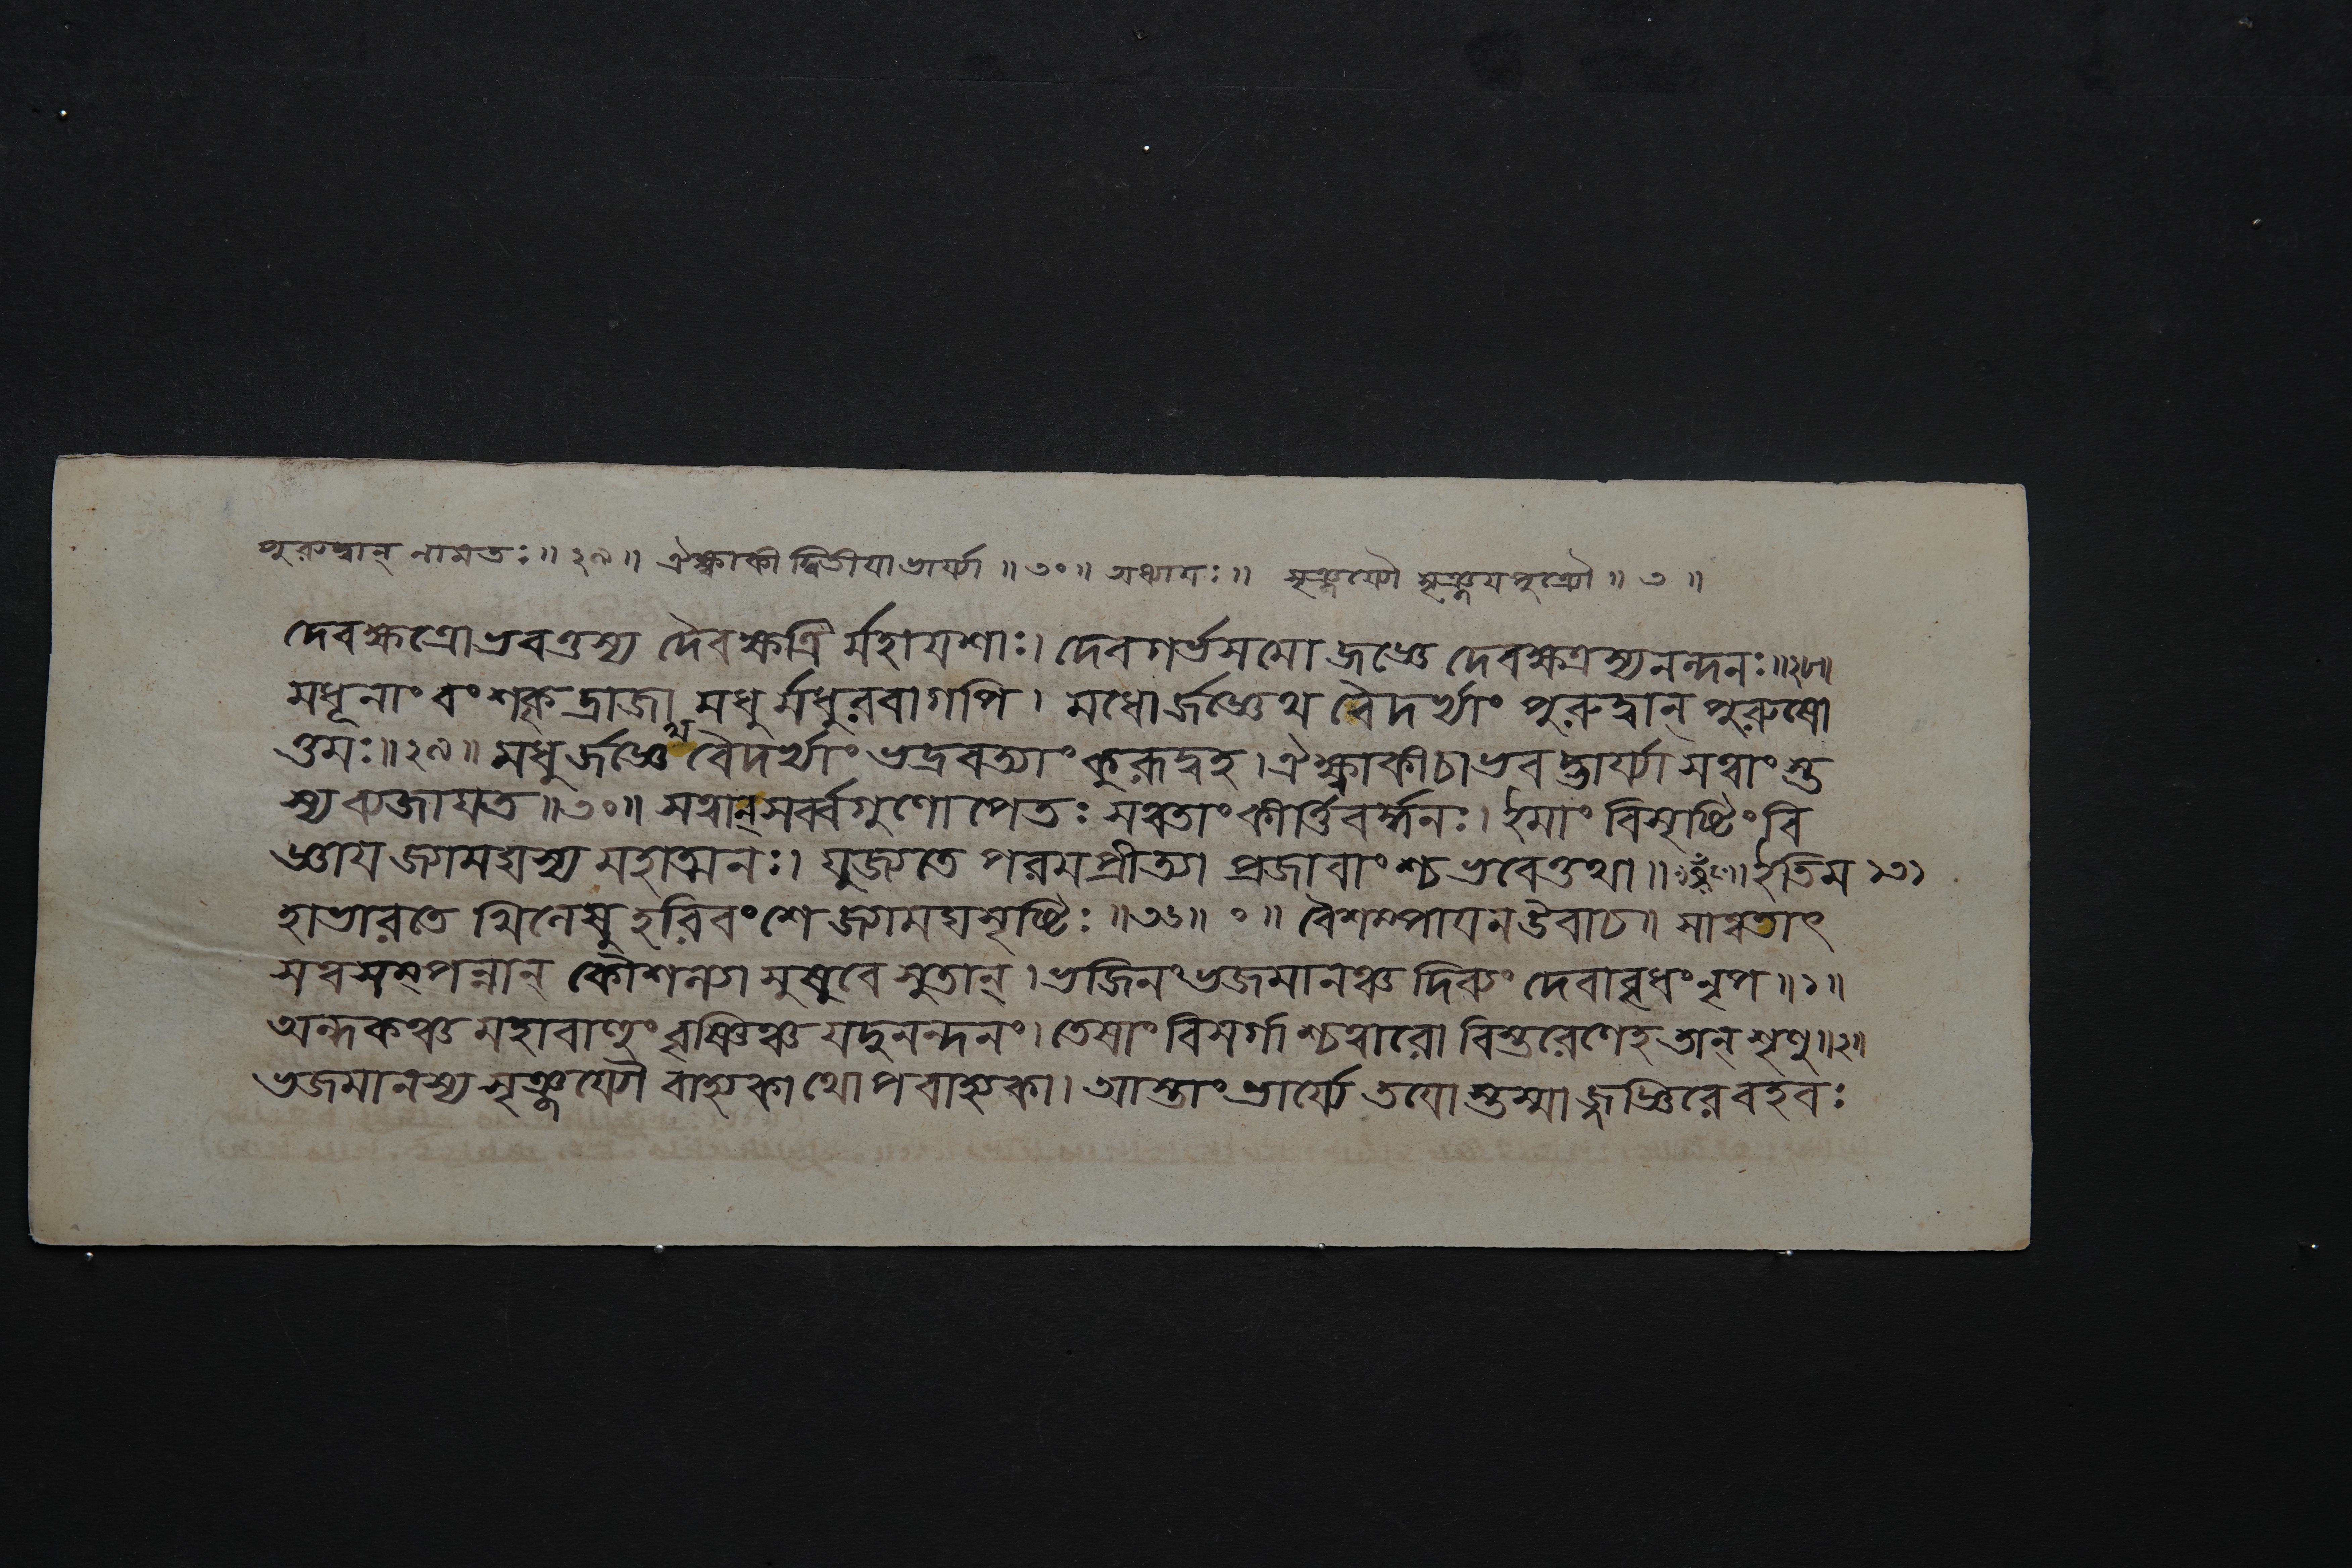 পুরুদ্বান্ নামতঃ॥২৯॥ ঐক্ষ্বাকী দ্বিতীযা ভার্য্যা॥৩০॥ অধ্যাযঃ॥ সৃঞ্জয্যৌ সৃঞ্জযপুত্র্যৌ॥৩॥
দেবক্ষেত্রোভবত্তস্য দৈবক্ষত্রির্মহাযশাঃ। দেবগর্ভসমো জজ্ঞে দেবক্ষত্রস্যনন্দনঃ॥২৮॥
মধূনাং বংশকৃদ্রাজা মধুর্মধুরবাগপি। মধোর্জজ্ঞেথ বৈদর্ভ্যাং পুরুদ্বান্ পুরুষো
ত্তমঃ॥২৯॥ মধুর্জজ্ঞেথ বৈদর্ভ্যাং ভদ্রবত্যাং কুরূদ্বহ। ঐক্ষ্বাকীচাভবদ্ভার্য্যা সত্বাংস্ত
স্যব্যজাযত॥৩০॥ সত্বান্সর্ব্বগুণোপেতঃ সত্বতাং কীর্ত্তিবর্দ্ধনঃ। ইমাং বিসৃষ্টিং বি
জ্ঞায জ্যামঘস্য মহাত্মনঃ। যুজ্যতে পরমপ্রীত্যা প্রজাবাংশ্চ ভবেত্তথা॥৩১॥ ইতিম ১৩১
হাভারতে খিলেষু হরিবংশে জ্যামঘসৃষ্টিঃ॥৩৬॥ ০॥ বৈশম্পাযনউবাচ॥ সাত্বতাৎ
সত্বসম্পন্নান্ কৌশল্যা সুষুবে সুতান্। ভজিনং ভজমানঞ্চ দিব্যং দেবাবৃধং নৃপ॥১॥
অন্ধকঞ্চ মহাবাহুং বৃষ্ণিঞ্চ যদুনন্দনং। তেষাং বিসর্গাশ্চত্বারো বিস্তরেণেহ তান্ শৃণু॥২॥
ভজমানস্য সৃঞ্জয্যৌ বাহ্যকাথোপবাহ্যকা। আস্তাং ভার্য্যে তযোস্তস্মাজ্জজ্ঞিরে বহবঃ